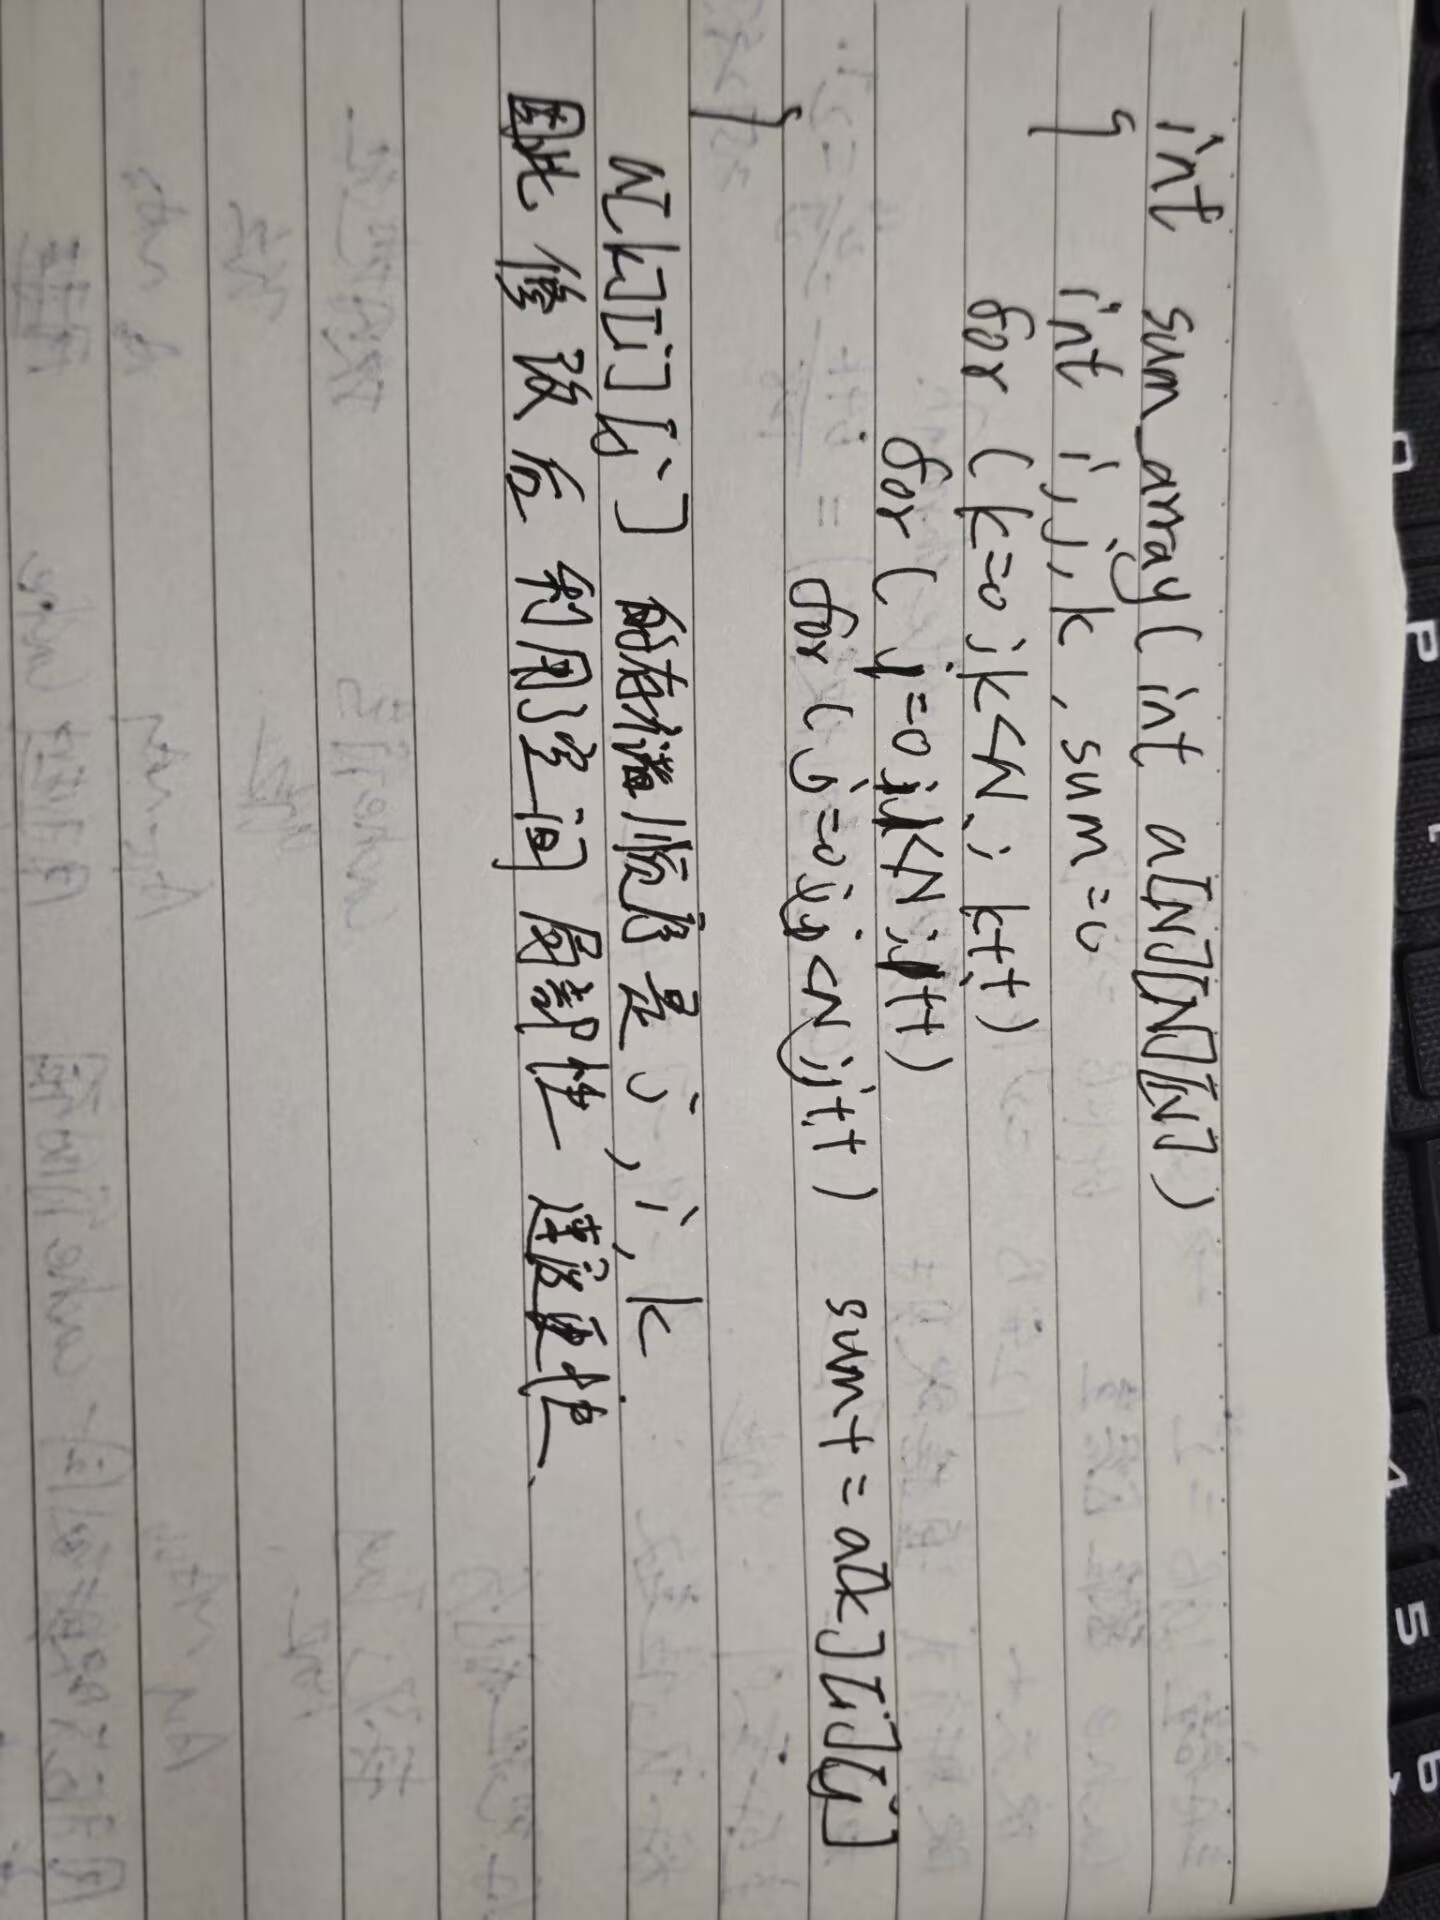 int sum_array(int a[N][N][N])
{
int i,j,k,sum=0
for (k=0;k<N;k++)
for (i=0;i<N;i++)
for (j=0;j<N;j++) sum+=a[k][i][j]
}
a[k][i][j]的存储顺序是j,i,k
因此修改后利用了空间局部性 速度更快.